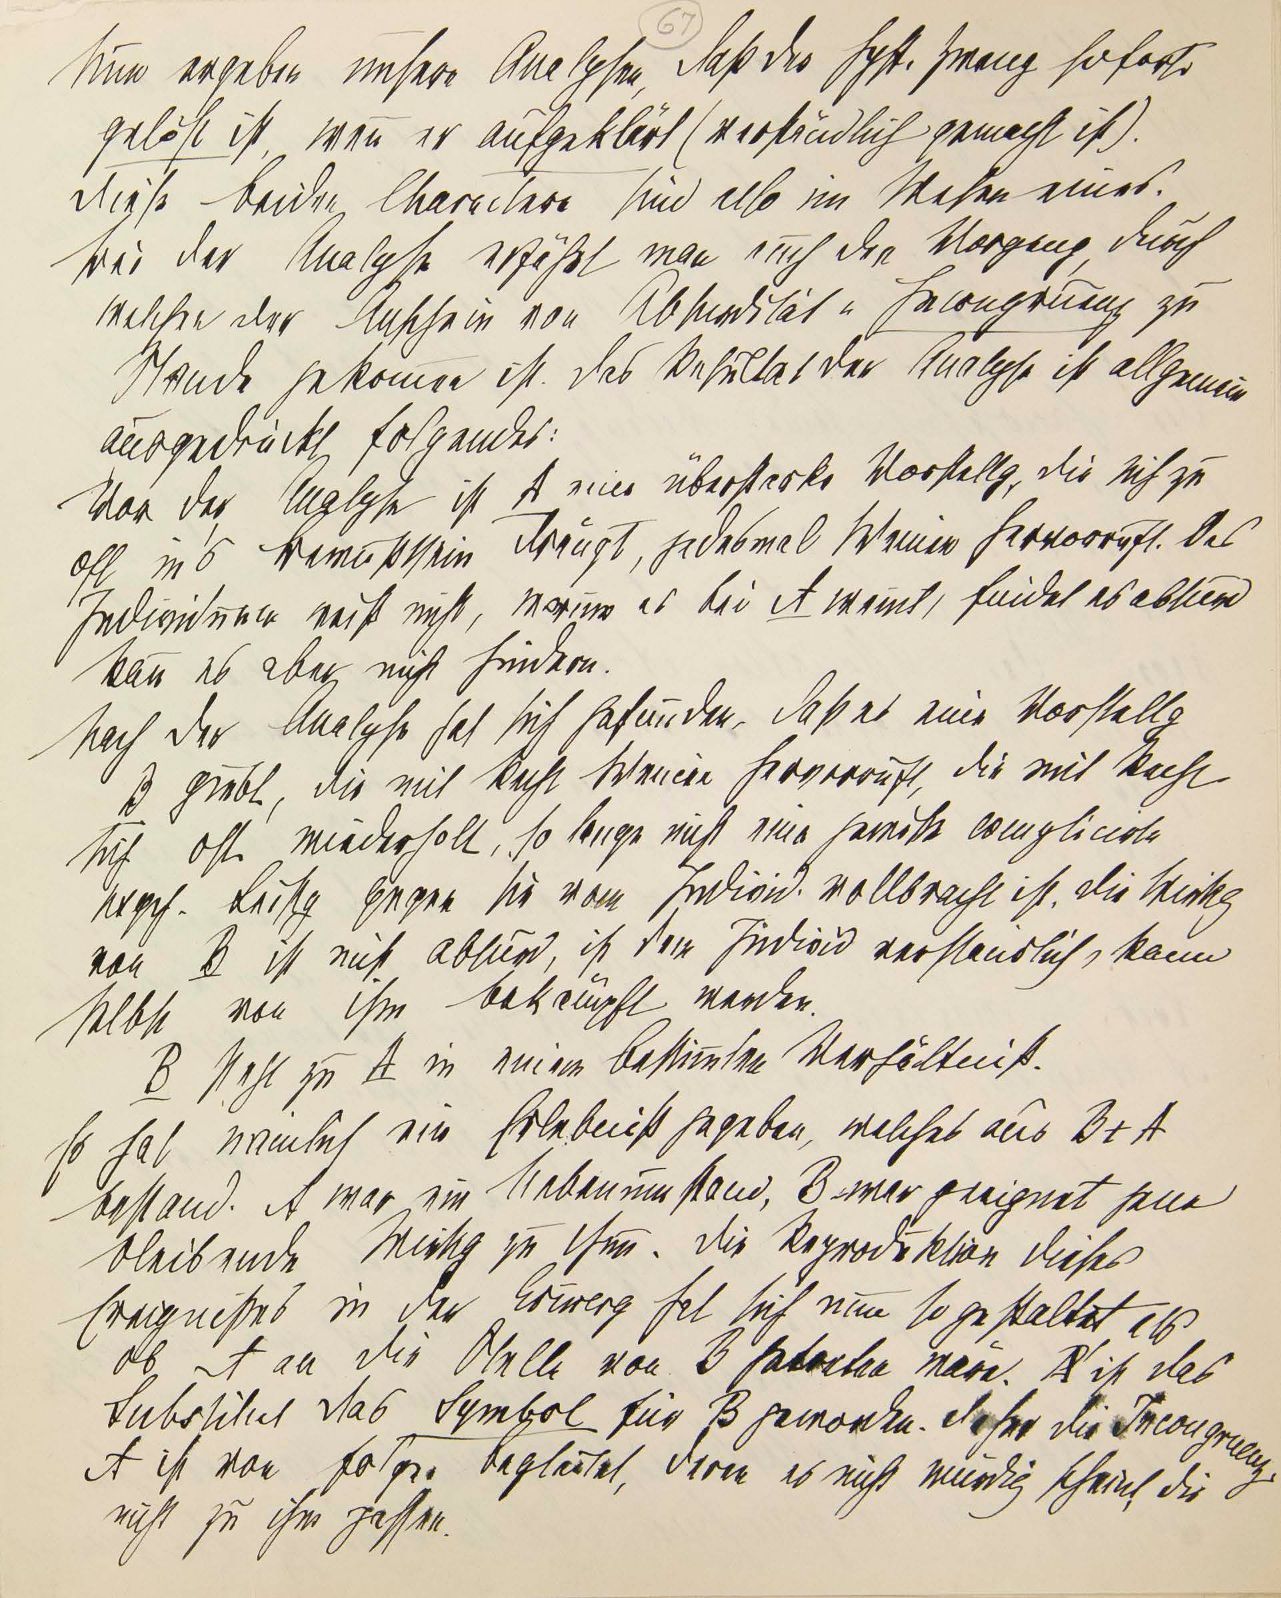 67
Nun ergeben unsere Analysen, daß der hyst. Zwang sofort
gelöst ist, wenn er aufgeklärt (verständlich gemacht ist).
Diese beiden Charactere sind also im Wesen eines.
Bei der Analyse erfährt man auch den Vorgang, durch
welchen der Anschein von Absurdität u Incongruenz zu
Stande gekommen ist. Das Resultat der Analyse ist allgemein
ausgedrückt folgendes:
Vor der Analyse ist A eine überstarke Vorstellg, die sich zu
oft in's Bewußtsein drängt, jedesmal Weinen hervorruft. Das
Individuum weiß nicht, warum es bei A weint, findet es absurd
kann es aber nicht hindern.
Nach der Analyse hat sich gefunden, daß es eine Vorstellg
B giebt, die mit Recht Weinen hervorruft, die mit Recht
sich oft wiederholt, so lange nicht eine gewiße complicirte
psych. Leistg gegen sie vom Individ. vollbracht ist. Die Wirkg
von B ist nicht absurd, ist dem Individ verständlich, kann
selbst von ihm bekämpft werden.
B steht zu A in einem bestimmten Verhältniß.
Es hat nämlich ein Erlebniß gegeben, welches aus B + A
bestand. A war ein Nebenumstand, B war geeignet jene
bleibende Wirkg zu thun. Die Reproduktion dieses
Ereignißes in der Erinnerg hat sich nun so gestaltet als
ob A an die Stelle von B getreten wäre. A ist das
Substitut das Symbol für B geworden. Daher die Incongruenz
A ist von Folgen begleitet, deren es nicht würdig scheint, die
nicht zu ihm passen.